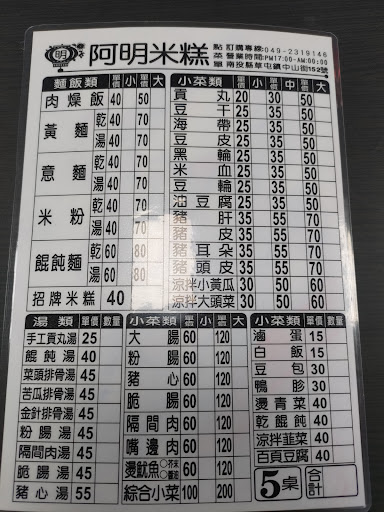 明 阿明米糕 點菜單
訂購專線:049-2319146
營業時間:PM17:00-AM:00:00
南投縣草屯鎮中山街152號
麵飯類 單價 小 單價 大
肉燥飯 40 50
黃麵 乾 40 70
湯 40 70
意麵 乾 40 70
湯 40 70
米粉 乾 40 70
湯 40 70
餛飩麵 乾 60 80
湯 60 80
招牌米糕 40
小菜類 單價 小 單價 中 單價 大
貢丸 20 30 50
豆干 25 35 50
海帶 25 35 50
豆皮 25 35 50
黑輪 25 35 50
米血 25 35 50
豆輪 25 35 50
油豆腐 25 35 50
豬肝 35 55 70
豬皮 35 55 70
豬耳朵 35 55 70
豬頭皮 35 55 70
涼拌小黃瓜 30 50
涼拌大頭菜 30 50
湯類 單價 數量
手工貢丸湯 25
餛飩湯 40
菜頭排骨湯 45
苦瓜排骨湯 45
金針排骨湯 45
粉腸湯 45
隔間肉湯 45
脆腸湯 45
豬心湯 55
小菜類 單價 小 單價 大
大腸 60 120
粉腸 60 120
豬心 60 120
脆腸 60 120
隔間肉 60 120
嘴邊肉 60 120
燙魷魚 ○芥末 ○醬油 60 120
綜合小菜 100 200
小菜類 單價 數量
滷蛋 15
白飯 15
豆包 30
鴨胗 30
燙青菜 40
乾餛飩 40
涼拌韮菜 40
百頁豆腐 40
5桌 合計